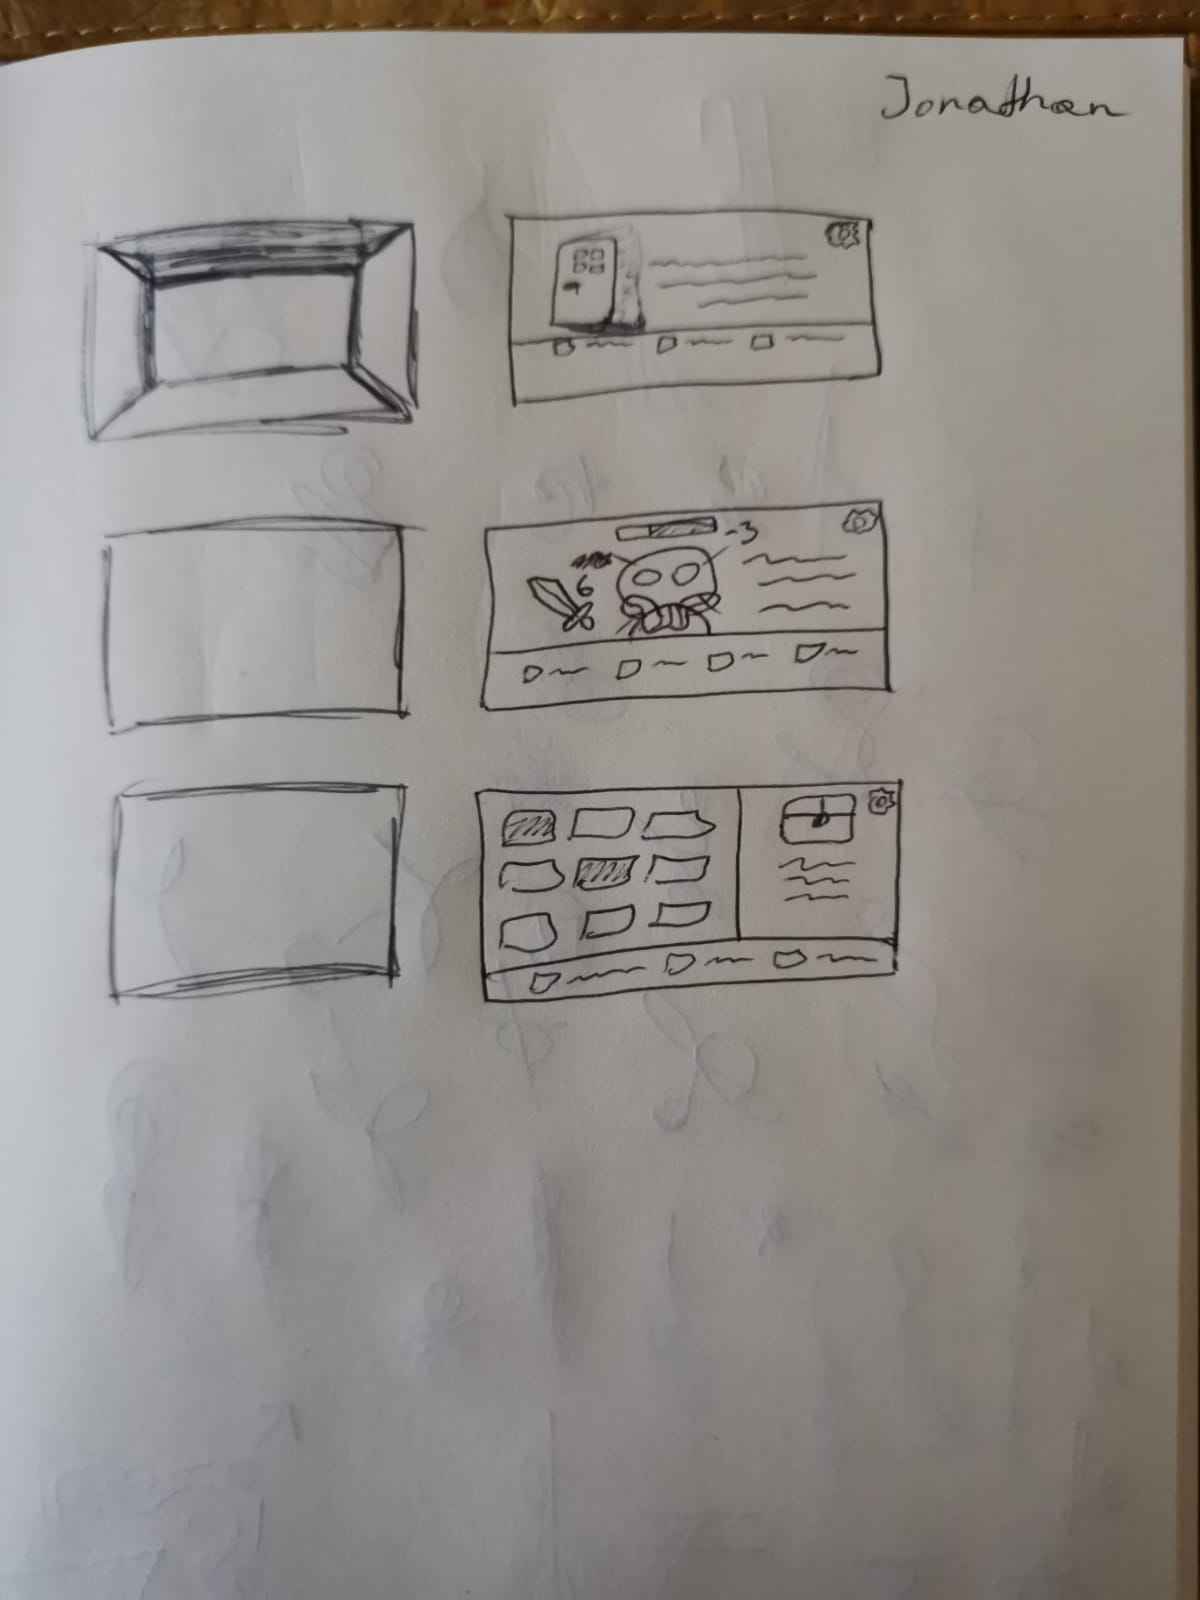 Jonathan
-3
6